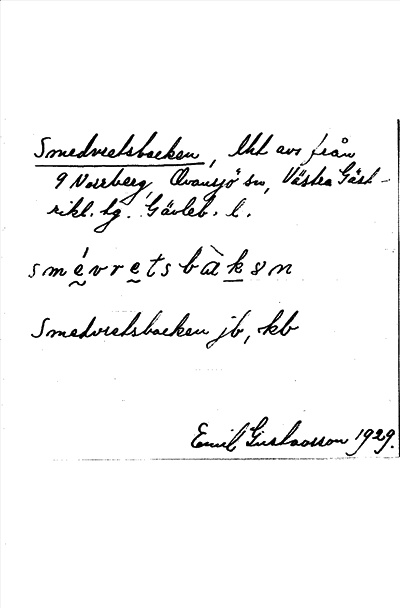 Smedvretsbacken, lht avs från
9 Norrberg, Ovansjö sn, Västra Gäst-
rikl. tg. Gävleb. l.
smévretsbàkən
Smedvretsbacken jb, kb
Emil Gustavsson 1929.